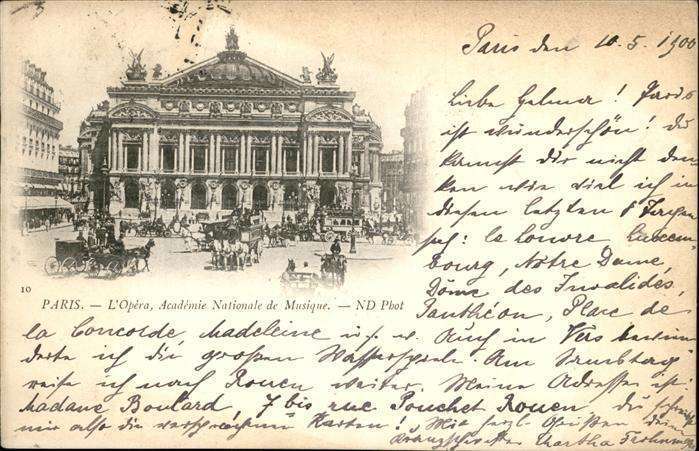 Paris den 10.5.1900
Liebe Helma! Paris
ist wunderschön! Du
kannst Dir nicht den
ken wie viel ich in
diesen letzten 8 Tagen
sah: le louvre Luxem
bourg, Notre Dame,
Dôme des Invalides,
Panthéon, Place de
la Concorde Madeleine u.s.w. Auch in Vers
derte ich die großen Wasserspiele. Am Samstag
reise ich nach Rouen weiter. Meine Adresse ist
Madame Boulard, 7 bis rue Pouchet Rouen, du
mir also die versprochenen Karten! Mit herzl. Grüßen Deine
Martha
10
PARIS. — L'Opéra, Académie Nationale de Musique. — ND Phot